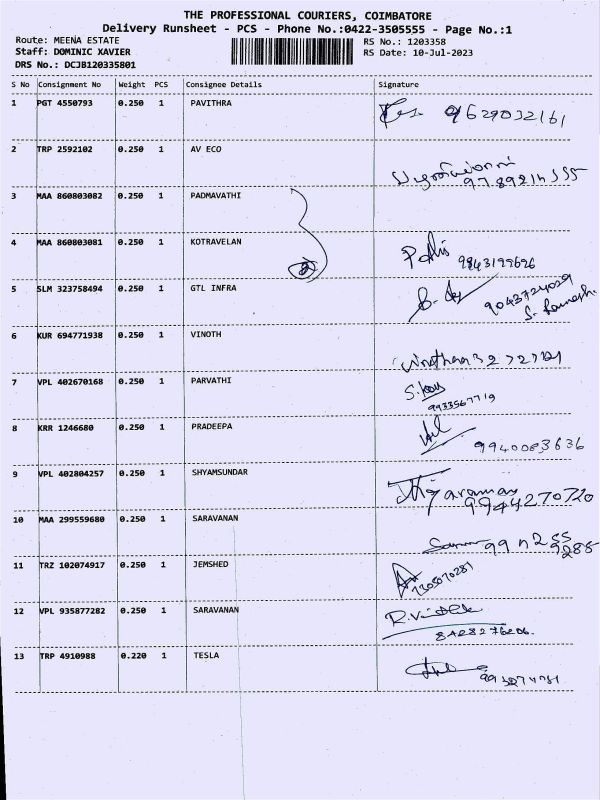 THE PROFESSIONAL COURIERS, COIMBATORE
Delivery Runsheet - PCS - Phone No.:0422-3505555 - Page No.:1
Route: MEENA ESTATE RS No.: 1203358
Staff: DOMINIC XAVIER RS Date: 10-Jul-2023
DRS No.: DCJB120335801
S No Consignment No Weight PCS Consignee Details Signature
1 PGT 4550793 0.250 1 PAVITHRA 9629032161
2 TRP 2592102 0.250 1 AV ECO
3 MAA 860803082 0.250 1 PADMAVATHI
4 MAA 860803081 0.250 1 KOTRAVELAN
9943199626
5 SLM 323758494 0.250 1 GTL INFRA
9043724029
6 KUR 694771938 0.250 1 VINOTH
7 VPL 402670168 0.250 1 PARVATHI
9933567719
8 KRR 1246680 0.250 1 PRADEEPA
9940083636
9 VPL 402804257 0.250 1 SHYAMSUNDAR
9944270720
10 MAA 299559680 0.250 1 SARAVANAN
11 TRZ 102074917 0.250 1 JEMSHED
7305070281
12 VPL 935877282 0.250 1 SARAVANAN
8428276206.
13 TRP 4910988 0.220 1 TESLA